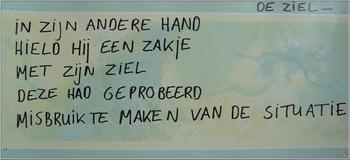 DE ZIEL —
iN ZijN ANDERE HAND
HiELD Hij EEN ZAKjE
MET ZijN ZIEL
DEZE HAD GEPROBEERD
MISBRUIK TE MAKEN VAN DE SITUATIE